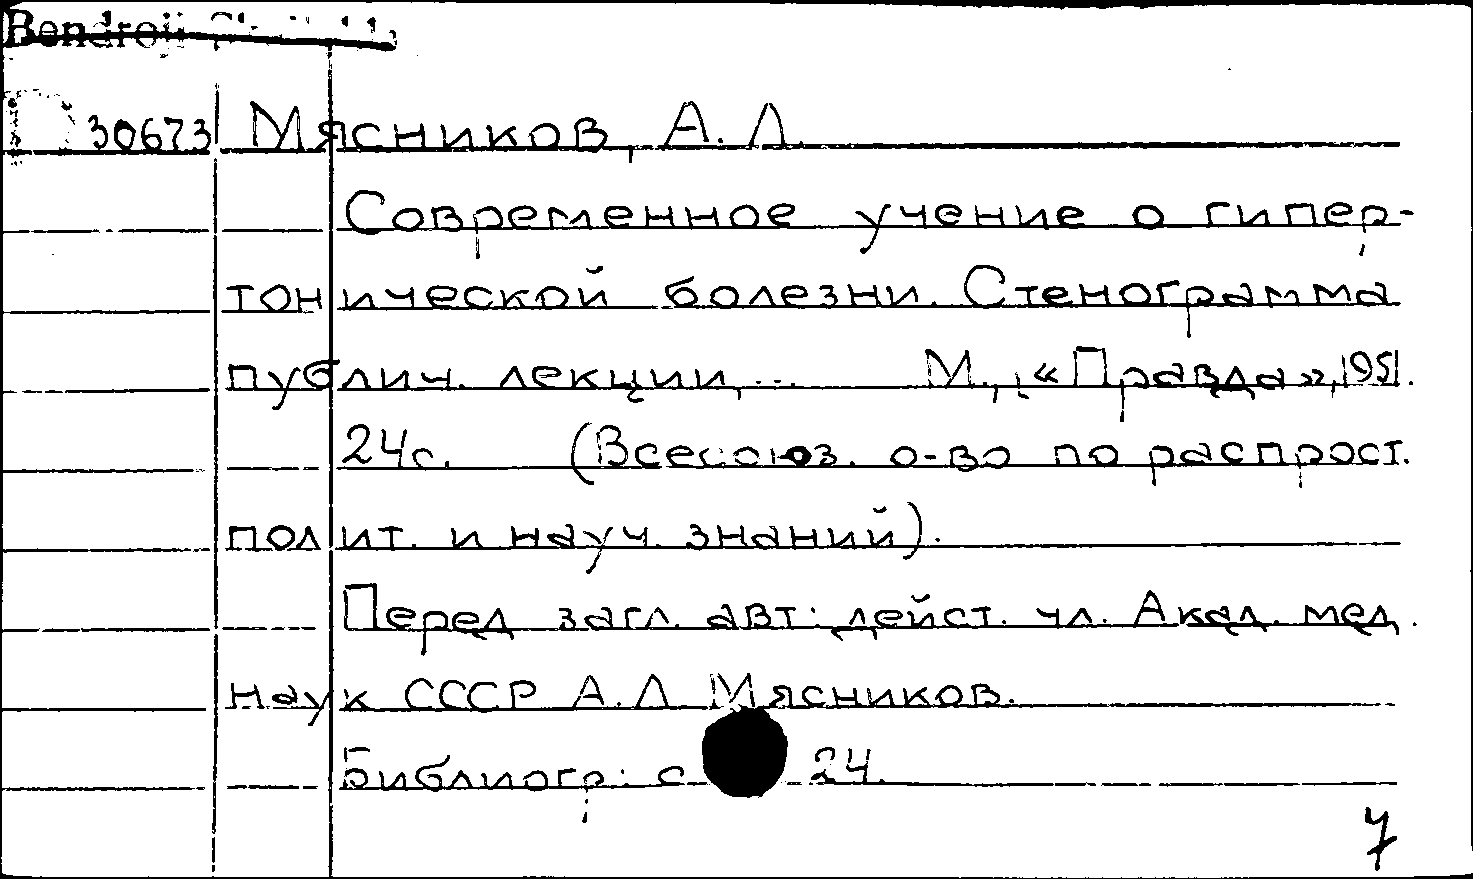 30673 Мясников, А.Л.
Современное учение о гипер-
тонической болезни. Стенограмма
публич. лекции,... М., «Правда», 1951.
24с. (Всесоюз. о-во по распрост.
полит. и науч. знаний).
Перед загл. авт: дейст. чл. Акад. мед.
наук СССР А.Л. Мясников.
Библиогр: с 24.
7